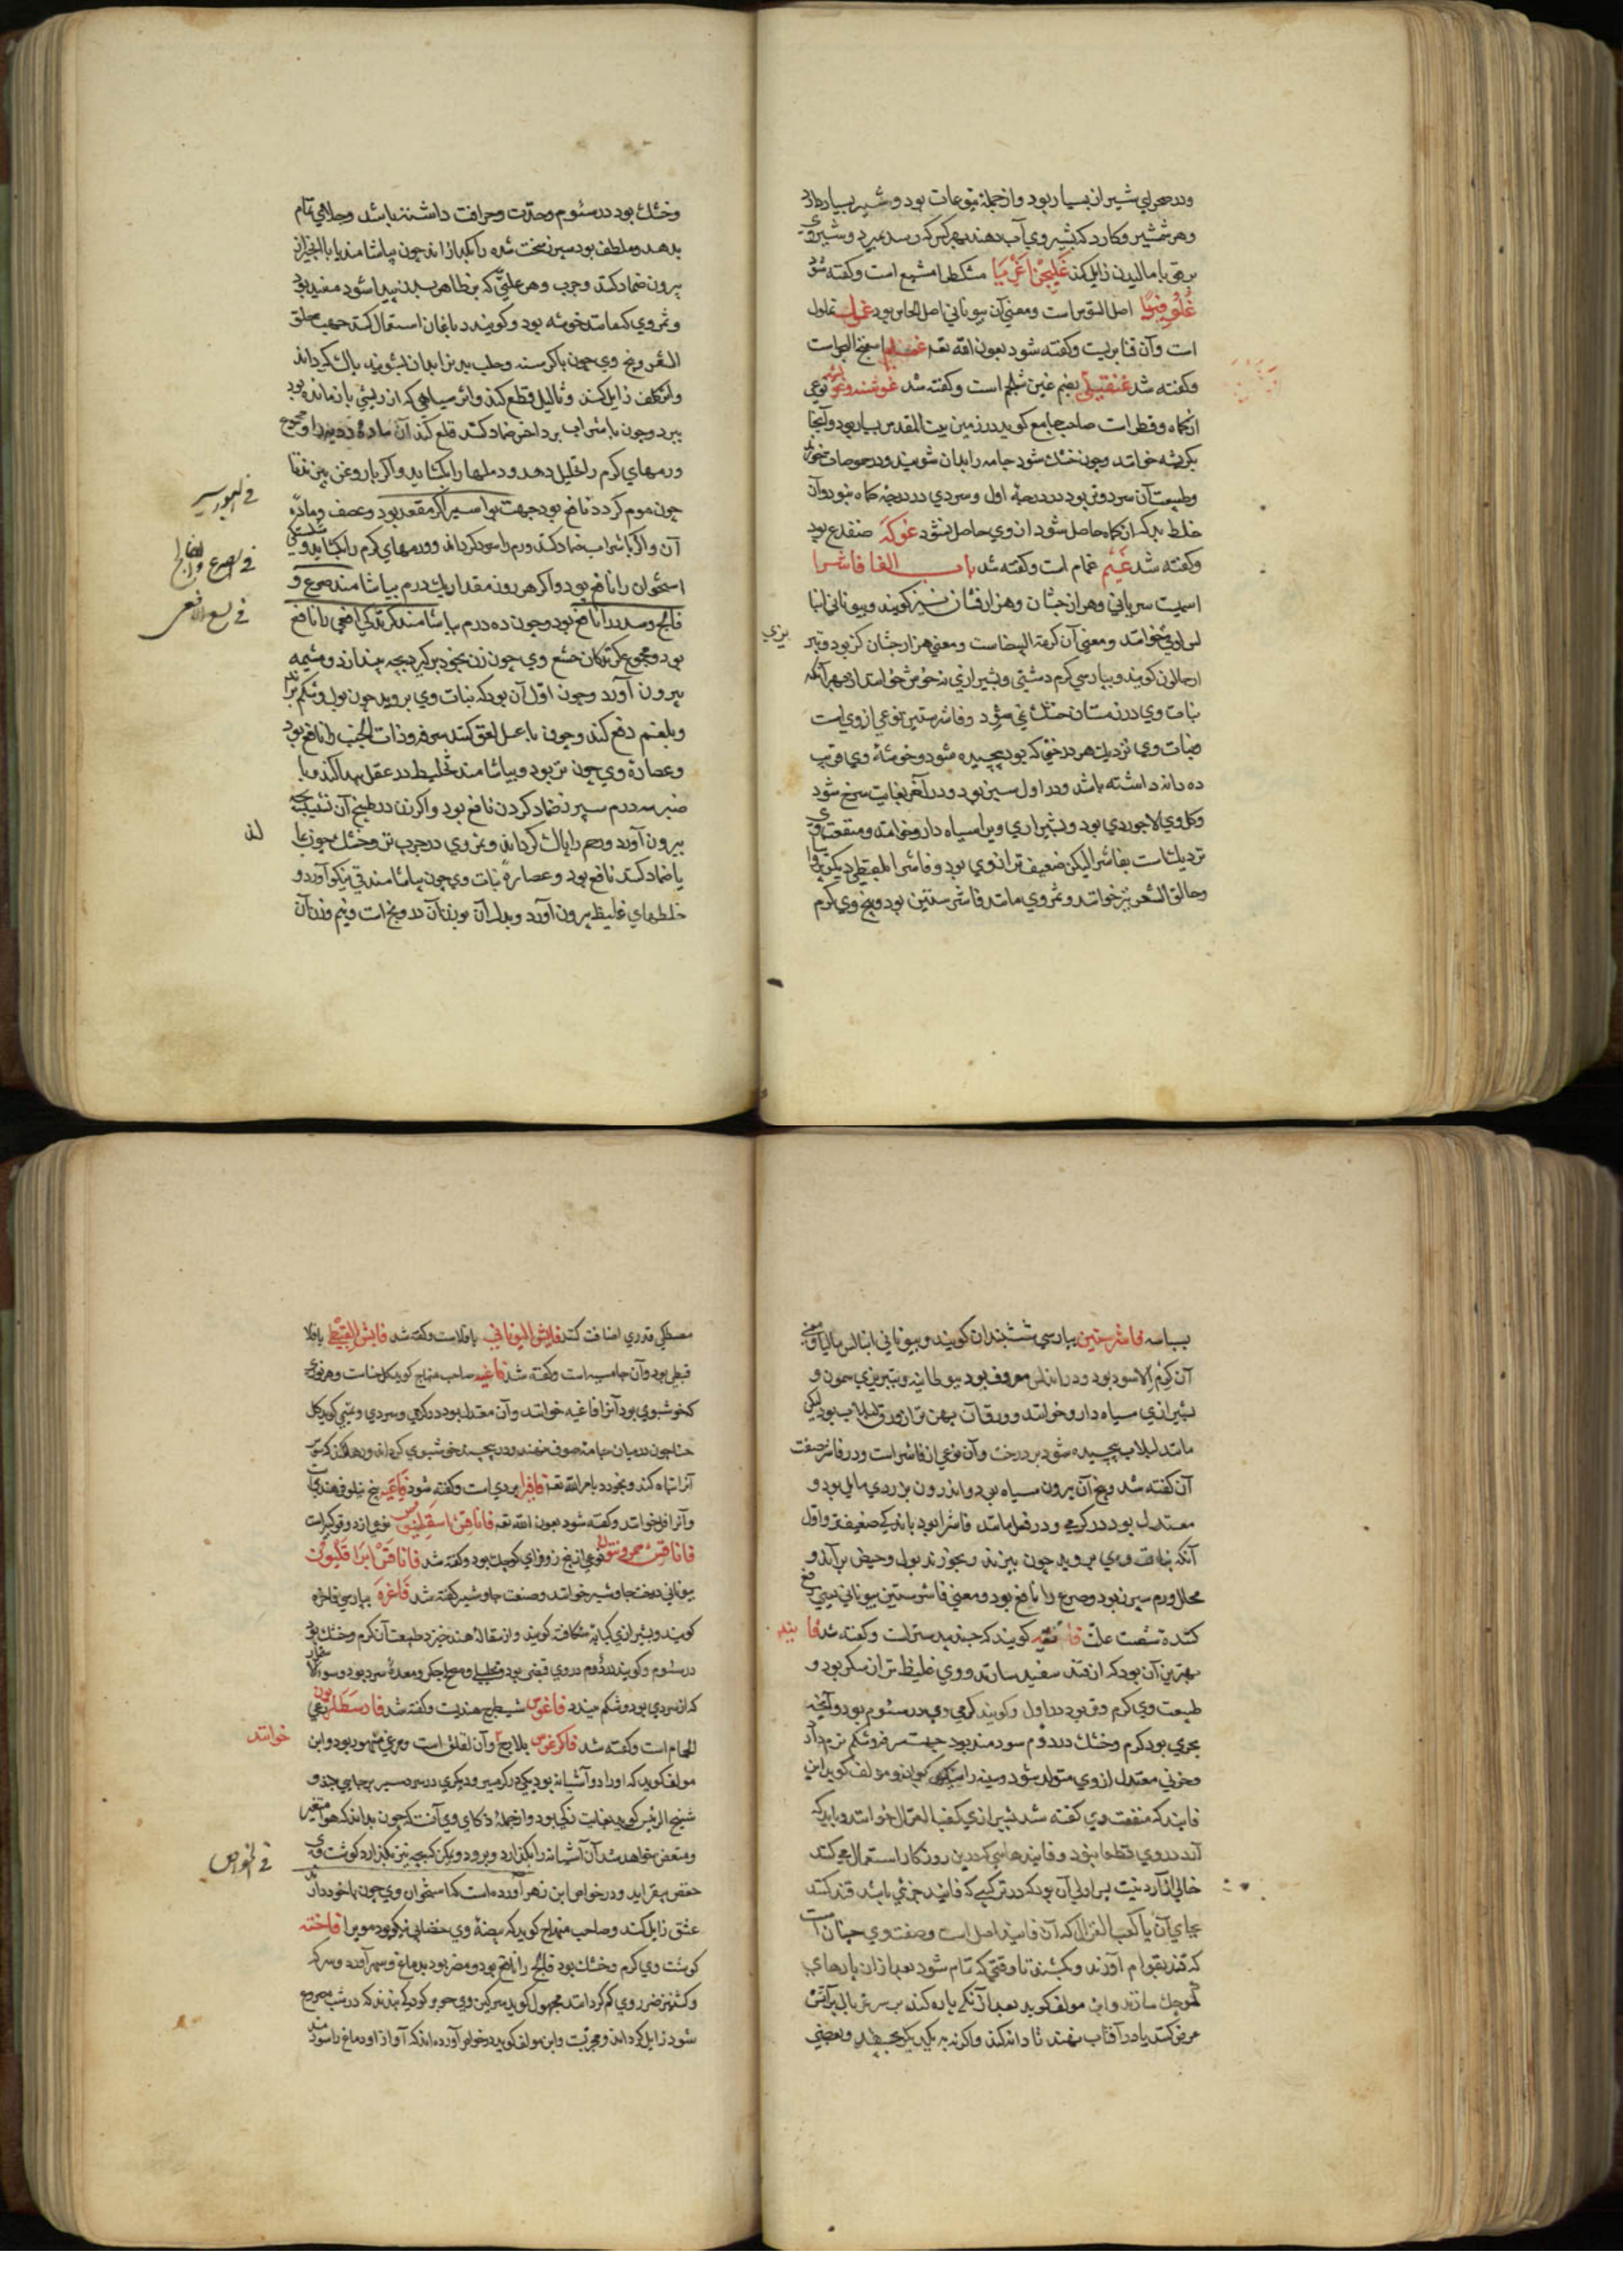 ودر صحرای شیراز بسیار بود واز جمله یتوعات بود وشیر بسیار دارد
وهر شمشیر وکارد که بشیر وی آب دهند بهر کس که رسد بمیرد وشیر وی
برص را مالیدن زایل کند غلیجن اغریا مشکطرامشیع است وکفته شود
اصل السوس است ومعنی آن بیونانی اصل الحلو بود
است وآن قنابریست وکفته شود بعون الله تعه اسفنج البحر است
وکفته شد بضم غین شلجم است وکفته شد غوشنه نوعی
از کماه وفطر است صاحب جامع کوید در زمین بیت المقدس بسیار بود وآنجا
بکرشه خوانند وچون خشك شود جامه را بدان شویند ودر حموضات خورند
وطبیعت آن سرد وتر بود در درجهٔ اول وسردی در درجهٔ کماه نبود وآن
خلط بد که از کماه حاصل شود از وی حاصل نشود غوکه ضفدع بود
وکفته شد غیم غمام است وکفته شد باب الفا فاشرا
اسمیست سریانی وهزار جشان وهزار فشان نیز کویند وبیونانی انبا
لس لوقی خوانند ومعنی آن کرمة البیضاست ومعنی هزار جشان کز بود وتبر
یزی
کویند وبپارسی کرم دشتی وبشیرازی نخوش خوانند از بهر آنکه
نبات وی در زمستان خشك نمی شود وفاشرستین نوعی از وی است
ونبات وی نزدیك هر درختی که بود پیچیده شود وخوشهٔ وی قریب
ده دانه داشته باشد ودر اول سبز بود ودر آخر بغایت سرخ شود
وکل وی لاجوردی بود وبشیرازی ویرا سیاه دارو خوانند ومنفعت وی
نزدیك است بفاشرا لیکن ضعیف تر از وی بود وفاشرا
وحالق الشعر نیز خوانند وثمر وی مانند فاشرستین بود وبیخ وی کرم
وخشك بود در سئوم وحدّت وحرافت داشته باشد وجلاهی تمام
بدهد وملطف بود سپرز سخت شده را بکدازاند چون بیاشامند یا با انجیر از
بیرون ضماد کنند وجرب وهر علتی که بر ظاهر بدن پیدا شود مفید بود
وثمر وی که مانند خوشه بود وکویند دباغان استعمال کنند جهت حلق
الشعر وبیخ وی چون با کرسنه وحلبه بپزند وبدان بشویند پاك کرداند
واثر کلف زایل کند وثالیل قطع کند واثر سیاهی که از ریشی باز مانده بود
ببرد وچون با شراب بر داخس ضماد کنند قلع کند آن ماده
ورمهای کرم را تحلیل دهد ودملها را بکشاید واکر با روغن بپزند تا
چون موم کردد نافع بود جهت بواسیر اکر مقعد بود وعصف وماده
فی البواسیر
آن واکر با شراب ضماد کنند ورم را سود کرداند وورمهای کرم را بکشاید وشکستکی
استخوان را نافع بود واکر هر روز مقدار یك درم بیاشامند صرع و
فی الصرع والفالج
فالج وسدر را نافع بود وچون ده درم بیاشامند کزیدکی افعی را نافع
فی لسع الافعی
بود وچون زن بخود برکیرد بچه بیندازد ومشیمه
بیرون آورد وچون اوّل آن بود که نبات وی بروید چون بول وشکم براند
وبلغم دفع کند وچون با عسل لعق کنند سرفه وذات الجنب را نافع بود
وعصارة وی چون تر بود وبیاشامند تخلیط در عقل پیدا کند وبا
سپرز ضماد کردن نافع بود واکر زن در طبیخ آن نشیند بچه
بیرون آورد ورحم را پاك کرداند وثمر وی در جرب تر وخشك چون بما
لند
یا ضماد کنند نافع بود وعصارهٔ نبات وی چون بیاشامند قی نیکو آورد و
خلطهای غلیظ بیرون آورد وبدل آن بوزن آن درونج است ونیم وزن آن
بسباسه فاشرستین بپارسی ششبندان کویند وبیونانی انبالس مالیا ومعنی
آن کرم الاسود بود ودر اندلس معروف بود ببوطانیه وبتبریزی میمون و
بشیرازی سیاه دارو خوانند وورقات آن پهن تر از ورق لبلاب بود لیکن
مانند لبلاب پیچیده شود بر درخت وآن نوعی از فاشراست ودر فاشرا صفت
آن کفته شد وبیخ آن بیرون سیاه بود واندرون بزردی مایل بود و
معتدل بود در کرمی ودر فعل مانند فاشرا بود باندکی ضعیف تر واول
آنکه نبات وی بروید چون بپزند وبخورند بول وحیض براند و
محلل ورم سپرز بود وصرع را نافع بود ومعنی فاشرستین بیونانی یعنی دفع
کننده شصت علت کویند که جندبیدستر است وکفته شد فانید
بهترین آن بود که از قند سفید سازند ووی غلیظ تر از سکر بود و
طبیعت وی کرم وتر بود در اول وکویند کرمی وی در سئوم بود وآنچه
بحری بود کرم وخشك در دوم سودمند بود جهت سرفه وشکم نرم دارد
وخونی معتدل از وی متولد شود وسینه را نیکو بود ومولف کوید این
فانید که منفعت وی کفته شد بشیرازی کعب الغزال خوانند وباید که
آرد در وی قطعا نبود وفانیدهایی که درین روزکار استعمال می کنند
خالی از آرد نیست پس اولی آن بود که در ترکیبی که فانید جزئی باشد قند کنند
بجای آن یا کعب الغزال که آن فانید اصل است وصفت وی چنان است
که قند بقوام آورند وبکشند تا وقتی که تمام شود بعد از آن پارهای
کوچك سازند وابن مولف کوید بعد از آنکه پاره کنند بر سر غربال بر آتش
عرض کنند یا در آفتاب نهند تا دانه کند واکر نه بر یکدیکر بچسبد وبعضی
مصطکی قدری اضافت کنند فابس الیونانی باقلاست وکفته شد فابس القبطی باقلا
قبطی بود وآن جامسه است وکفته شد فاغیه صاحب منهاج کوید کل حناست وهر نوری
که خوشبوی بود آنرا فاغیه خوانند وآن معتدل بود در کرمی وسردی وتمیمی کوید کل
حنا چون در میان جامه صوف نهند ودر پیچند خوشبوی کرداند ورها نکند که سوس
آنرا تباه کند وبخورد بامر الله تعه فافیرا بردی است وکفته شود فاغیه بیخ نیلوفر هندیست
وآنرا فل خوانند وکفته شود بعون الله تعه فاناقس اسقلینوس نوعی از دوقو کبیر است
فاناقس خیرونیون نوعی از بیخ زوفرای کوچك بود وکفته شد فاناقس ایراقلیون
بیونانی درخت جاوشیر خوانند وصفت جاوشیر کفته شد فاغره بپارسی فاخره
کویند وبشیرازی کبابه شکافته کویند واز سقاله هند خیزد طبیعت آن کرم وخشك بود
در سئوم وکویند در دوم در وی قبض بود وتحلیل ومصلح جکر ومعدهٔ سرد بود وسوء
که از سردی بود وشکم ببندد فاغوس شیطرج هندیست وکفته شد فارسطاریون رعی
الحمام است وکفته شد فالرغوس بلارج وآن لقلق است ومرغی مشهور بود وابن
خوانند
مولف کوید که او را دو آشیانه بود یکی در کرمسیر ودیکری در سردسیر
شیخ الرئیس کوید بغایت زکی بود واز جملهٔ ذکای وی آنست که چون بداند که هوا متغیر
ومتعفن خواهد شد آن آشیانه را بکذارد وبرود ویکن که بچه نیز بکذارد کوشت وی
فی الخواص
حفظ بیفزاید ودر خواص ابن زهر آورده است که استخوان وی چون با خود دارند
عشق زایل کند وصاحب منهاج کوید که بیضهٔ وی خضابی نیکو بود مو را فاخته
کوشت وی کرم وخشك بود فالج را نافع بود ومضر بود بدماغ وسهر آورد وسرکه
وکشنیز ضرر وی کم کرداند مجهول کوید سرکین وی چون بر کودکی بندند که در شب مصروع
شود زایل کرداند ومجربست وابن مولف کوید در خواص آورده اند که آواز او دماغ را سودمند